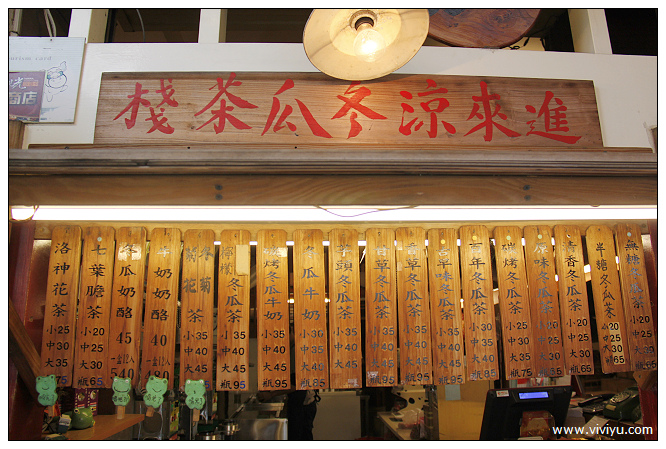 進來涼冬瓜茶棧
商店
無糖
小20
中25
大35
瓶65
半糖冬瓜茶
小20
中25
大35
瓶65
清香冬瓜茶
小25
中30
大35
瓶75
原味冬瓜茶
小25
中30
大35
瓶75
碳烤冬瓜茶
小25
中30
大35
瓶75
百年冬瓜茶
小35
中40
大45
瓶95
味冬瓜茶
小35
中40
大45
瓶95
香草冬瓜茶
小35
中40
大45
瓶95
冬瓜茶
小35
中40
大45
瓶95
芋頭冬瓜茶
小35
中40
大45
瓶95
冬瓜牛奶
小30
中35
大40
瓶85
碳烤冬瓜牛奶
小35
中40
大45
瓶95
檸檬冬瓜茶
小35
中40
大45
瓶95
菊花茶
小35
中40
大45
瓶95
牛奶奶酪
40
冬瓜奶酪
45
一盒12入
540
七葉膽茶
小20
中25
大35
瓶65
洛神花茶
小25
中30
大35
瓶75
www.viviyu.com